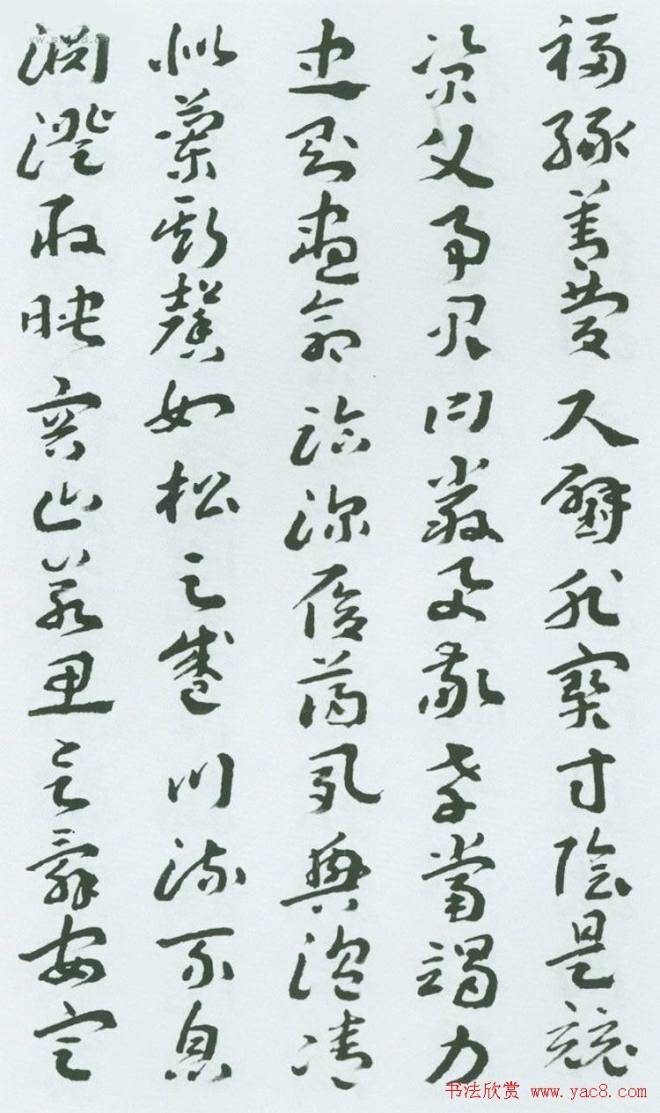 福緣善慶尺璧非寶寸陰是競
資父事君曰嚴與敬孝當竭力
忠則盡命臨深履薄夙興溫凊
似蘭斯馨如松之盛川流不息
淵澄取映容止若思言辭安定
书法欣赏 www.yac8.com